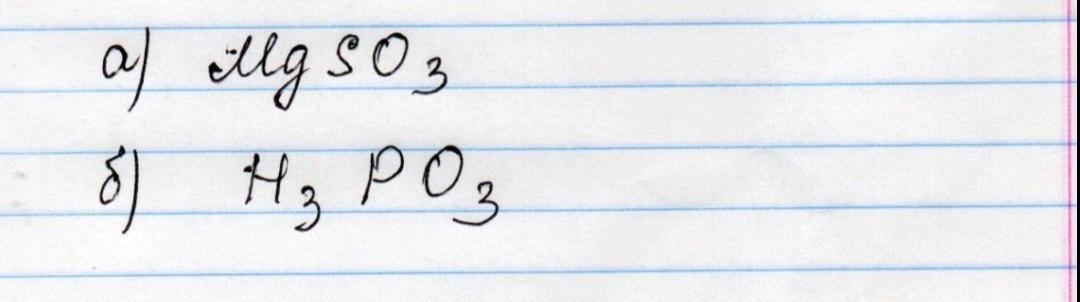 а) MgSO₃
б) H₃PO₃